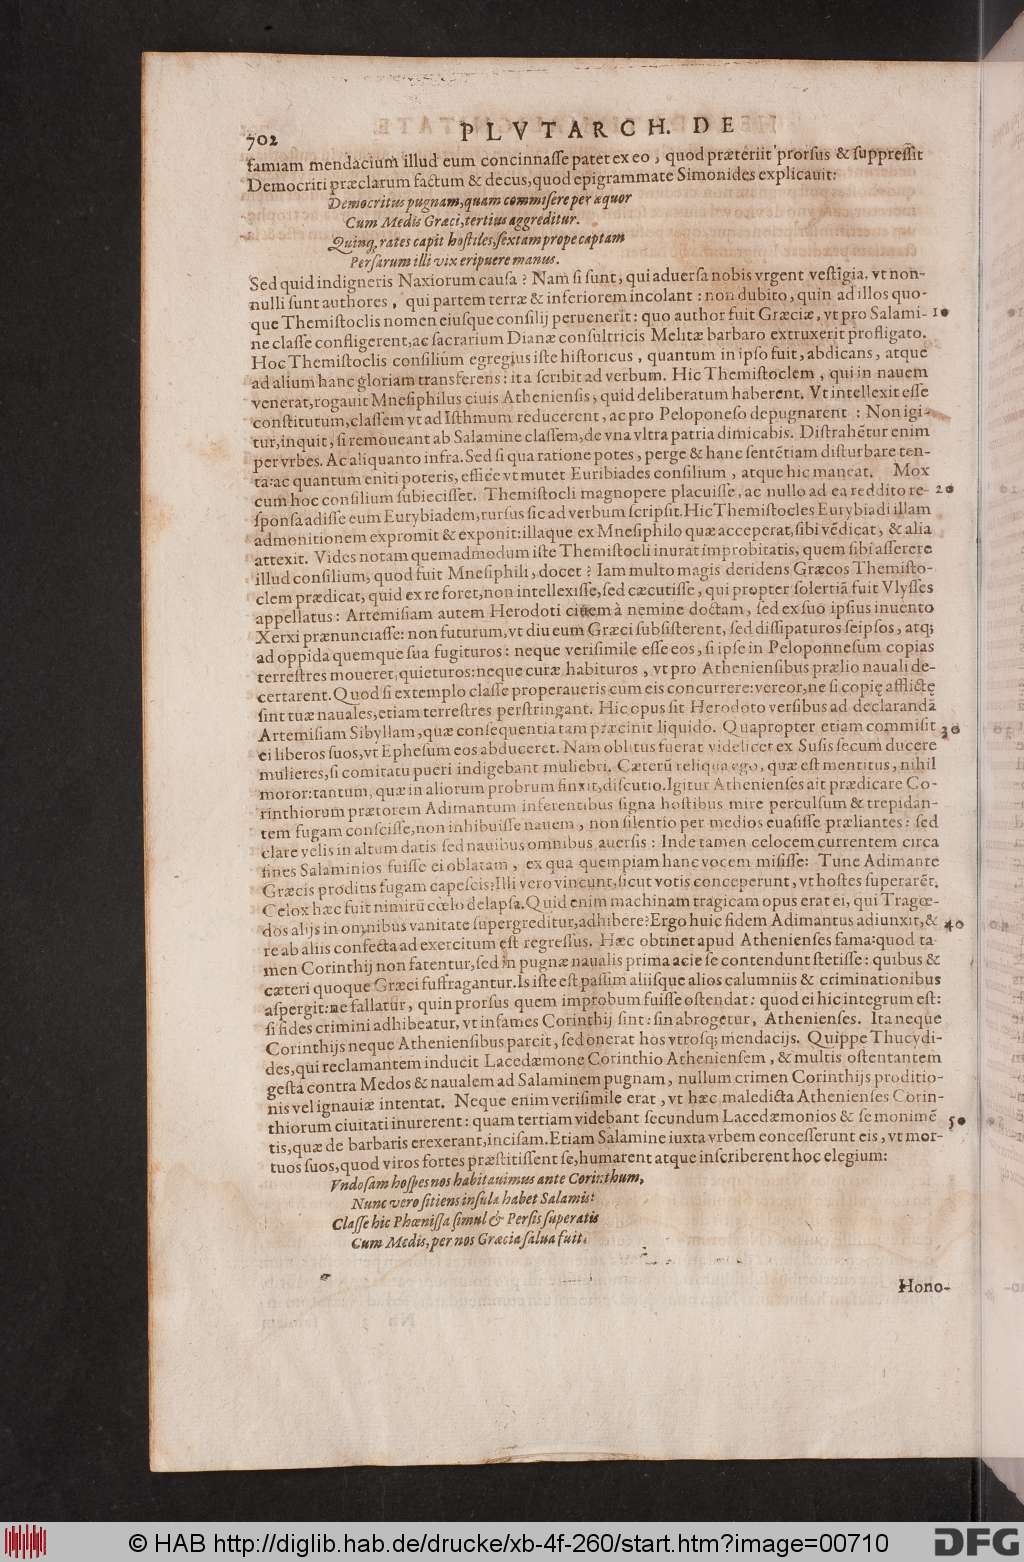 702
PLVTARCH. DE
famiam mendacium illud eum concinnaſſe patet ex eo, quod præteriit prorſus & ſuppreſſit
Democriti præclarum factum & decus, quod epigrammate Simonides explicauit:
Democritus pugnam, quam commiſere per æquor
Cum Medis Græci, tertius aggreditur.
Quinq, rates capit hoſtiles, ſextam prope captam
Perſarum illi vix eripuere manus.
Sed quid indigneris Naxiorum cauſa? Nam ſi ſunt, qui aduerſa nobis vrgent veſtigia, vt non-
nulli ſunt authores, qui partem terræ & inferiorem incolant: non dubito, quin ad illos quo-
que Themiſtoclis nomen eiuſque conſilij peruenerit: quo author fuit Græciæ, vt pro Salami- 10
ne claſſe confligerent, ac ſacrarium Dianæ conſultricis Melitæ barbaro extruxerit profligato.
Hoc Themiſtoclis conſilium egregius iſte hiſtoricus, quantum in ipſo fuit, abdicans, atque
ad alium hanc gloriam transferens: ita ſcribit ad verbum. Hic Themiſtoclem, qui in nauem
venerat, rogauit Mneſiphilus ciuis Athenienſis, quid deliberatum haberent. Vt intellexit eſſe
conſtitutum, claſſem vt ad Iſthmum reducerent, ac pro Peloponeſo depugnarent: Non igi-
tur, inquit, ſi remoueant ab Salamine claſſem, de vna vltra patria dimicabis. Diſtrahētur enim
per vrbes. Ac aliquanto infra. Sed ſi qua ratione potes, perge & hanc ſentētiam diſturbare ten-
ta: ac quantum eniti poteris, effice vt mutet Euribiades conſilium, atque hic maneat. Mox
cum hoc conſilium ſubieciſſet. Themiſtocli magnopere placuiſſe, ac nullo ad ea reddito re- 20
ſponſa adiſſe eum Eurybiadem, rurſus ſic ad verbum ſcripſit. Hic Themiſtocles Eurybiadi illam
admonitionem expromit & exponit: illaque ex Mneſiphilo quæ acceperat, ſibi vēdicat, & alia
attexit. Vides notam quemadmodum iſte Themiſtocli inurat improbitatis, quem ſibi aſſerere
illud conſilium, quod fuit Mneſiphili, docet? Iam multo magis deridens Græcos Themiſto-
clem prædicat, quid ex re foret, non intellexiſſe, ſed cæcutiſſe, qui propter ſolertiā fuit Vlyſſes
appellatus: Artemiſiam autem Herodoti ciuem à nemine doctam, ſed ex ſuo ipſius inuento
Xerxi prænunciaſſe: non futurum, vt diu eum Græci ſubſiſterent, ſed diſſipaturos ſeipſos, atq;
ad oppida quemque ſua fugituros: neque veriſimile eſſe eos, ſi ipſe in Peloponneſum copias
terreſtres moueret, quieturos: neque curæ habituros, vt pro Athenienſibus prælio nauali de-
certarent. Quod ſi extemplo claſſe properaueris cum eis concurrere: vereor, ne ſi copię afflictę
ſint tuæ nauales, etiam terreſtres perſtringant. Hic opus ſit Herodoto verſibus ad declarandā
Artemiſiam Sibyllam, quæ conſequentia tam præcinit liquido. Quapropter etiam commiſit 30
ei liberos ſuos, vt Epheſum eos abduceret. Nam oblitus fuerat videlicet ex Suſis ſecum ducere
mulieres, ſi comitatu pueri indigebant muliebri. Cæterū reliqua ego, quæ eſt mentitus, nihil
moror: tantum, quæ in aliorum probrum finxit, diſcutio. Igitur Athenienſes ait prædicare Co-
rinthiorum prætorem Adimantum inferentibus ſigna hoſtibus mire perculſum & trepidan-
tem fugam conſciſſe, non inhibuiſſe nauem, non ſilentio per medios euaſiſſe præliantes: ſed
clare velis in altum datis ſed nauibus omnibus auerſis: Inde tamen celocem currentem circa
fines Salaminios fuiſſe ei oblatam, ex qua quempiam hanc vocem miſiſſe: Tune Adimante
Græcis proditis fugam capeſcis? Illi vero vincunt, ſicut votis conceperunt, vt hoſtes ſuperarēt.
Celox hæc fuit nimirū cœlo delapſa. Quid enim machinam tragicam opus erat ei, qui Tragœ-
dos alijs in omnibus vanitate ſupergreditur, adhibere? Ergo huic fidem Adimantus adiunxit, & 40
re ab aliis confecta ad exercitum eſt regreſſus. Hæc obtinet apud Athenienſes fama: quod ta-
men Corinthij non fatentur, ſed in pugnæ naualis prima acie ſe contendunt ſtetiſſe: quibus &
cæteri quoque Græci ſuffragantur. Is iſte eſt paſſim aliiſque alios calumniis & criminationibus
aſpergit: ne fallatur, quin prorſus quem improbum fuiſſe oſtendat: quod ei hic integrum eſt:
ſi fides crimini adhibeatur, vt infames Corinthij ſint: ſin abrogetur, Athenienſes. Ita neque
Corinthijs neque Athenienſibus parcit, ſed onerat hos vtroſq; mendacijs. Quippe Thucydi-
des, qui reclamantem inducit Lacedæmone Corinthio Athenienſem, & multis oſtentantem
geſta contra Medos & naualem ad Salaminem pugnam, nullum crimen Corinthijs proditio-
nis vel ignauiæ intentat. Neque enim veriſimile erat, vt hæc maledicta Athenienſes Corin-
thiorum ciuitati inurerent: quam tertiam videbant ſecundum Lacedæmonios & ſe monimē 50
tis, quæ de barbaris erexerant, inciſam. Etiam Salamine iuxta vrbem conceſſerunt eis, vt mor-
tuos ſuos, quod viros fortes præſtitiſſent ſe, humarent atque inſcriberent hoc elegium:
Vndoſam hoſpes nos habitauimus ante Corinthum,
Nunc vero ſitiens inſula habet Salamis:
Claſſe hic Phœniſſa ſimul & Perſis ſuperatis
Cum Medis, per nos Græcia ſalua fuit.
Hono-
© HAB http://diglib.hab.de/drucke/xb-4f-260/start.htm?image=00710
DFG